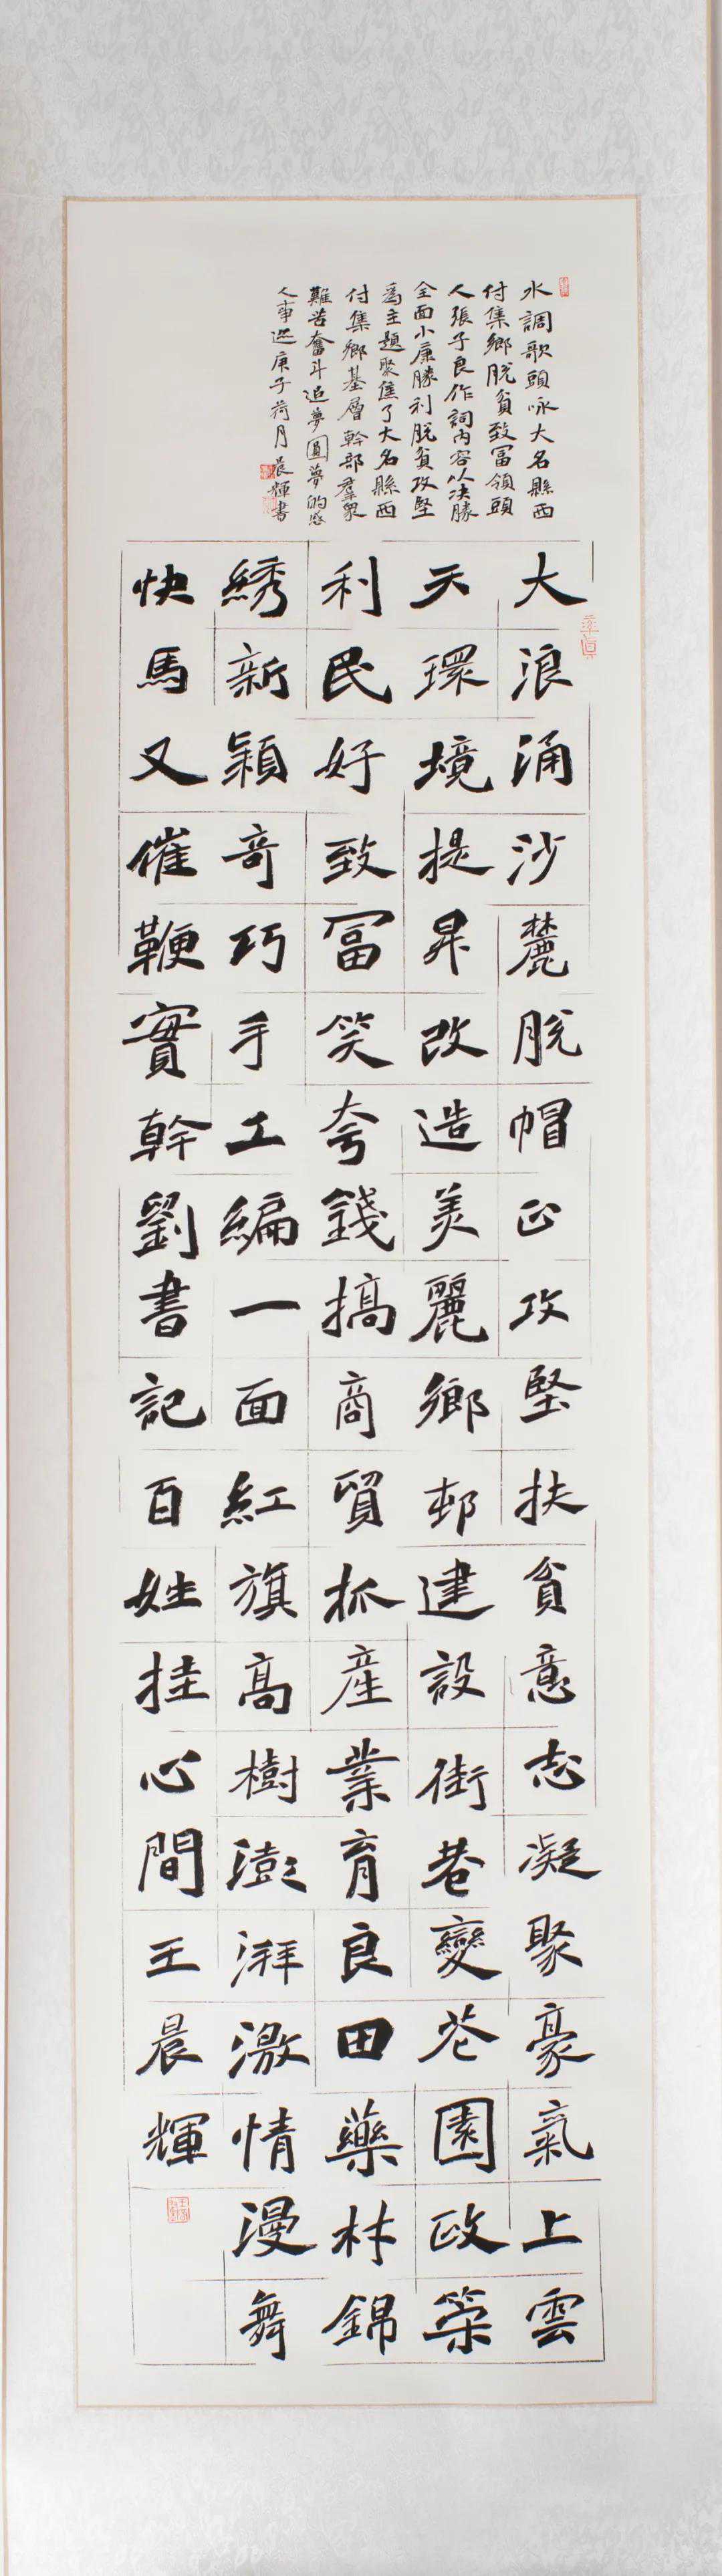 水調歌頭咏大名縣西
付集鄉脫貧致冨領頭
人張子良作詞內容以决勝
全面小康勝利脫貧攻堅
爲主題聚焦了大名縣西
付集鄉基層幹部羣衆
難苦奮斗追夢圓夢的感
人事迹庚子荷月晨輝書
大浪涌沙麓脫帽正攻堅扶貧意志凝聚豪氣上雲
天環境提昇改造美麗鄉邨建設街巷變花園政策
利民好致冨笑夸錢搞商貿抓產業育良田藥林錦
綉新穎奇巧手工編一面紅旗高樹澎湃激情漫舞
快馬又催鞭實幹劉書記百姓挂心間王晨輝